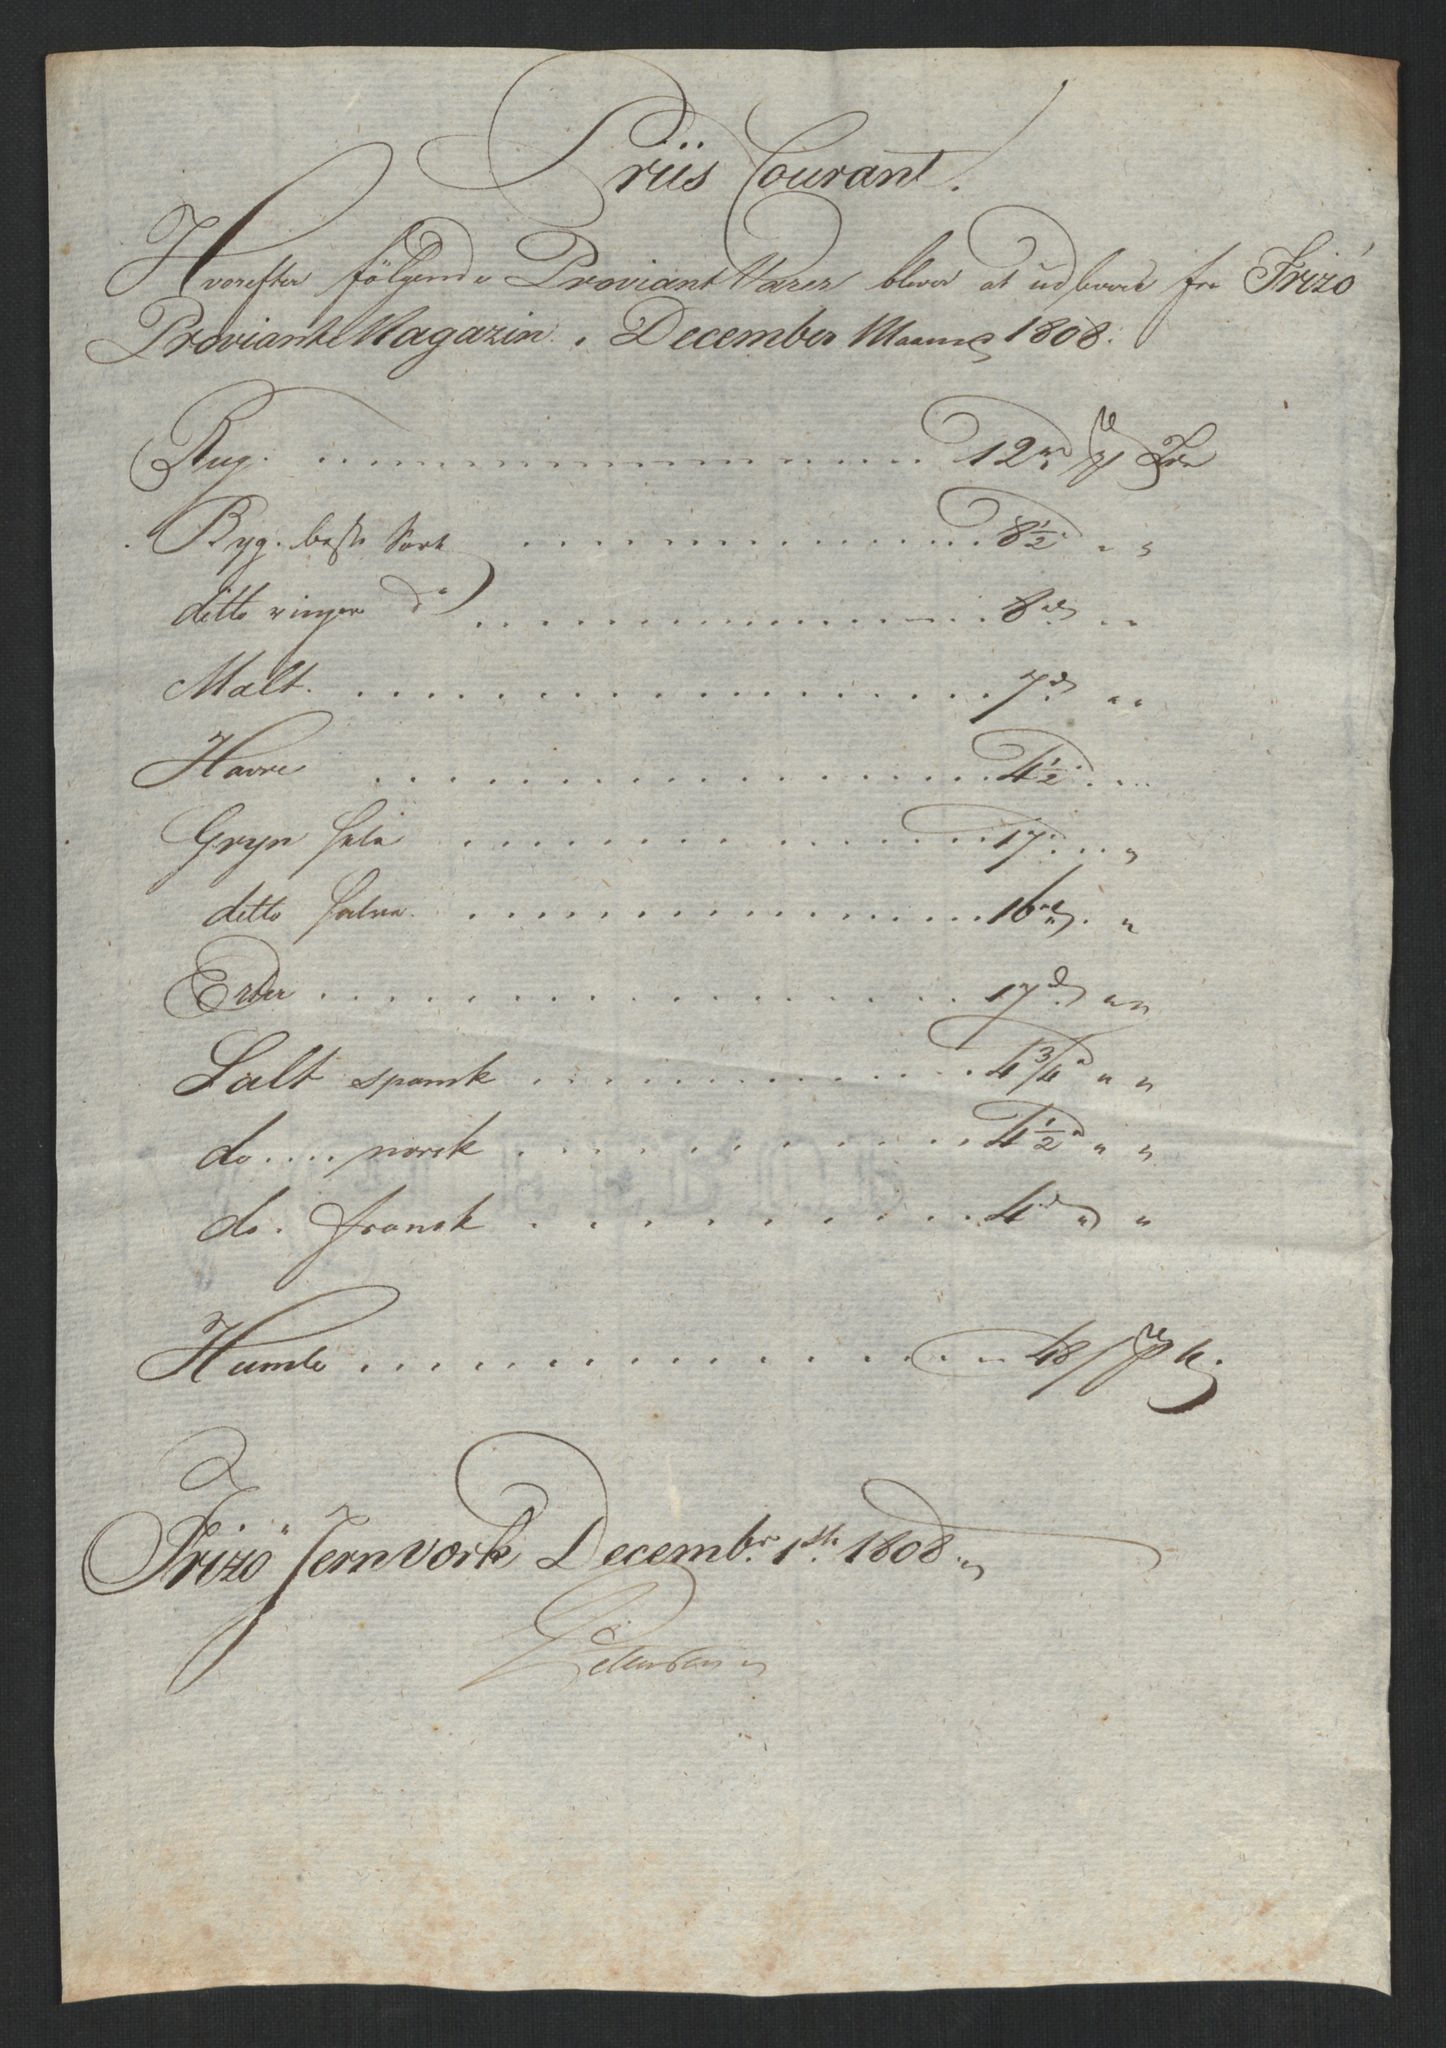 Priis Courant.
Hvorefter fölgende Proviant Varer bliver at udlevere fra Frizö
Proviant Magazin i December Maaned 1808.
Rug. 12 rd pr Tde
Byg. beste Sort 8 1/2 " "
ditto ringere do 8 rd " "
Malt. 7 d " "
Havre 4 1/2 " "
Gryn hele 17 " "
ditto halve 16 rd " "
Erter 17 d " "
Salt spansk 4 3/4 " "
do norsk 4 1/2 " "
do. fransk 4 d " "
Humle 48 / pr
Frizö Jernværk Decembr. 1ste 1808.